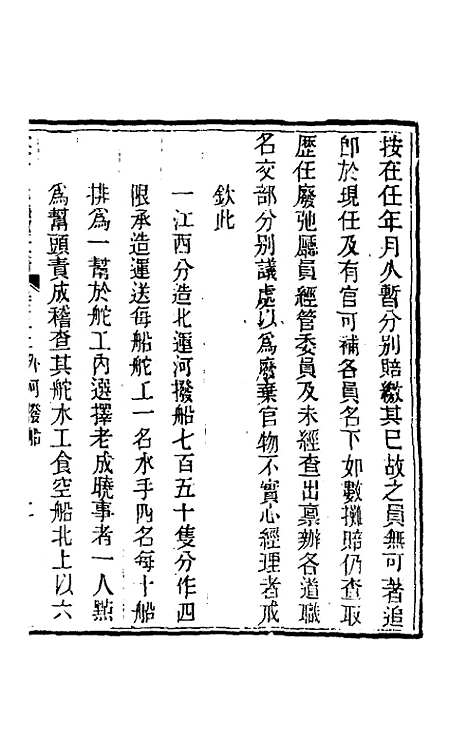 按在任年月久暫分別賠繳其已故之員無可著追
卽於現任及有官可補各員名下如數攤賠仍查取
歴任廢弛廳員經管委員及未經查出稟辦各道職
名交部分別議處以爲廢棄官物不實心經理者戒
欽此
一江西分造北運河撥船七百五十隻分作四
限承造運送每船舵工一名水手四名每十船
排爲一幫於舵工內選擇老成曉事者一人點
爲幫頭責成稽查其舵水工食空船北上以六
外河撥船